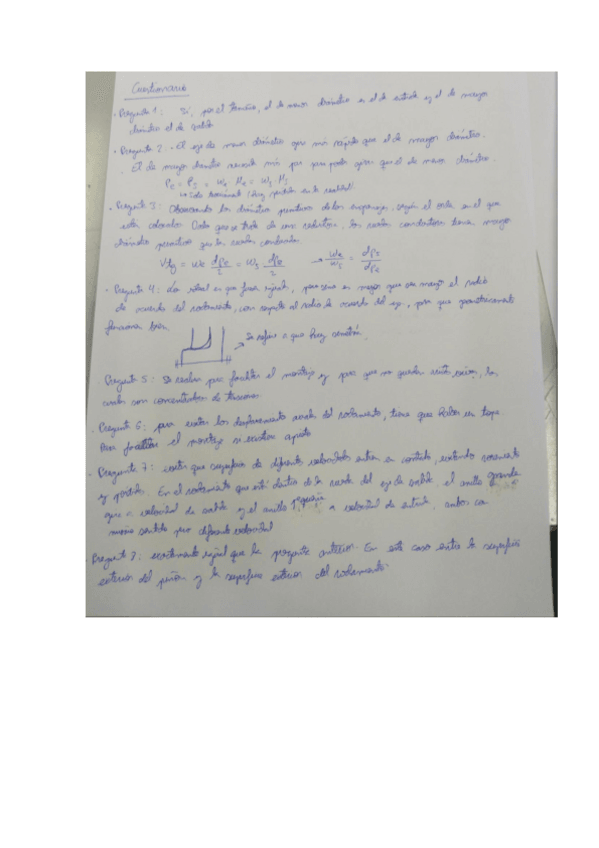 Cuestionario
- Pregunta 1: Si, por el tamaño, el de menor diámetro es el de entrada y el de mayor
diámetro el de salida
- Pregunta 2: - El eje de menor diámetro gira más rápido que el de mayor diámetro.
. El de mayor diámetro necesita más par para poder girar que el de menor diámetro.
Pe = Ps = We Me = Ws Ms
↳ Caso nominal (Hay pérdidas en la realidad).
- Pregunta 3: Observando los diámetros primitivos de los engranajes, según el orden en el que
están colocados. Dado que se trata de un reductor, las ruedas conductoras tienen
diámetro primitivo que las ruedas
Vtg = We dpe/2 = Ws dps/2 → We/Ws = dps/dpe
- Pregunta 4: Lo ideal es que fuera igual, pero es mejor que sea mayor el radio
de acuerdo del rodamiento, con respecto al radio de acuerdo del eje, para que geométricamente
funcione bien.
→ Se refiere a que haya contacto.
Pregunta 5: Se realizan para facilitar el montaje y para que no queden aristas vivas, las
cuales son concentradores de tensiones.
- Pregunta 6: para evitar los desplazamientos del rodamiento, tiene que haber un tope.
Para facilitar el montaje si existiera aprieto
- Pregunta 7: evitar que superficies de diferentes velocidades entren en contacto, evitando rozamiento
y pérdidas. En el rodamiento que está dentro de la rueda del eje de salida, el anillo grande
gira a velocidad de salida y el anillo pequeño a velocidad de entrada, ambos con
mismo sentido pero diferente velocidad
Pregunta 8: exactamente igual que la pregunta anterior. En este caso entre la superficie
exterior del piñón y la superficie exterior del rodamiento.